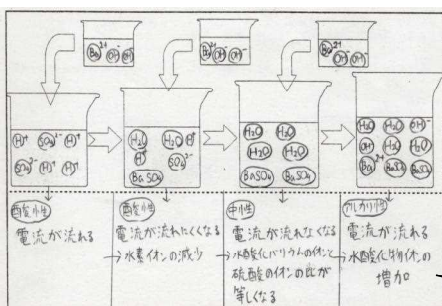 Ba²⁺ OH⁻ OH⁻
Ba²⁺ OH⁻ OH⁻
Ba²⁺ OH⁻ OH⁻
H⁺ SO₄²⁻ H⁺
SO₄²⁻ H⁺ H⁺
H₂O H₂O H⁺
H⁺ SO₄²⁻
BaSO₄
H₂O H₂O
H₂O H₂O
BaSO₄ BaSO₄
H₂O H₂O OH⁻
OH⁻ H₂O H₂O
Ba²⁺ BaSO₄ BaSO₄
酸性
電流が流れる
酸性
電流が流れにくくなる
→水素イオンの減少
中性
電流が流れなくなる
→水酸化バリウムのイオンと
硫酸のイオンの比が
等しくなる
アルカリ性
電流が流れる
→水酸化物イオンの
増加